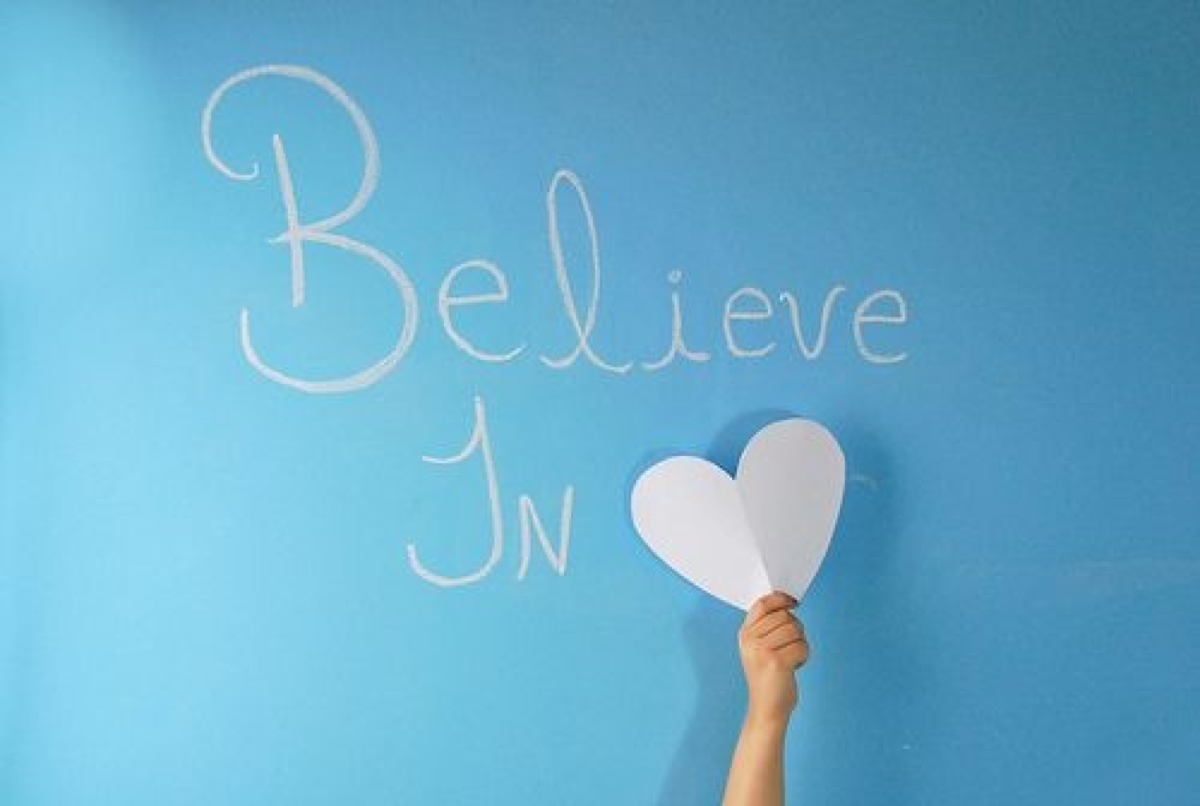 Believe
In